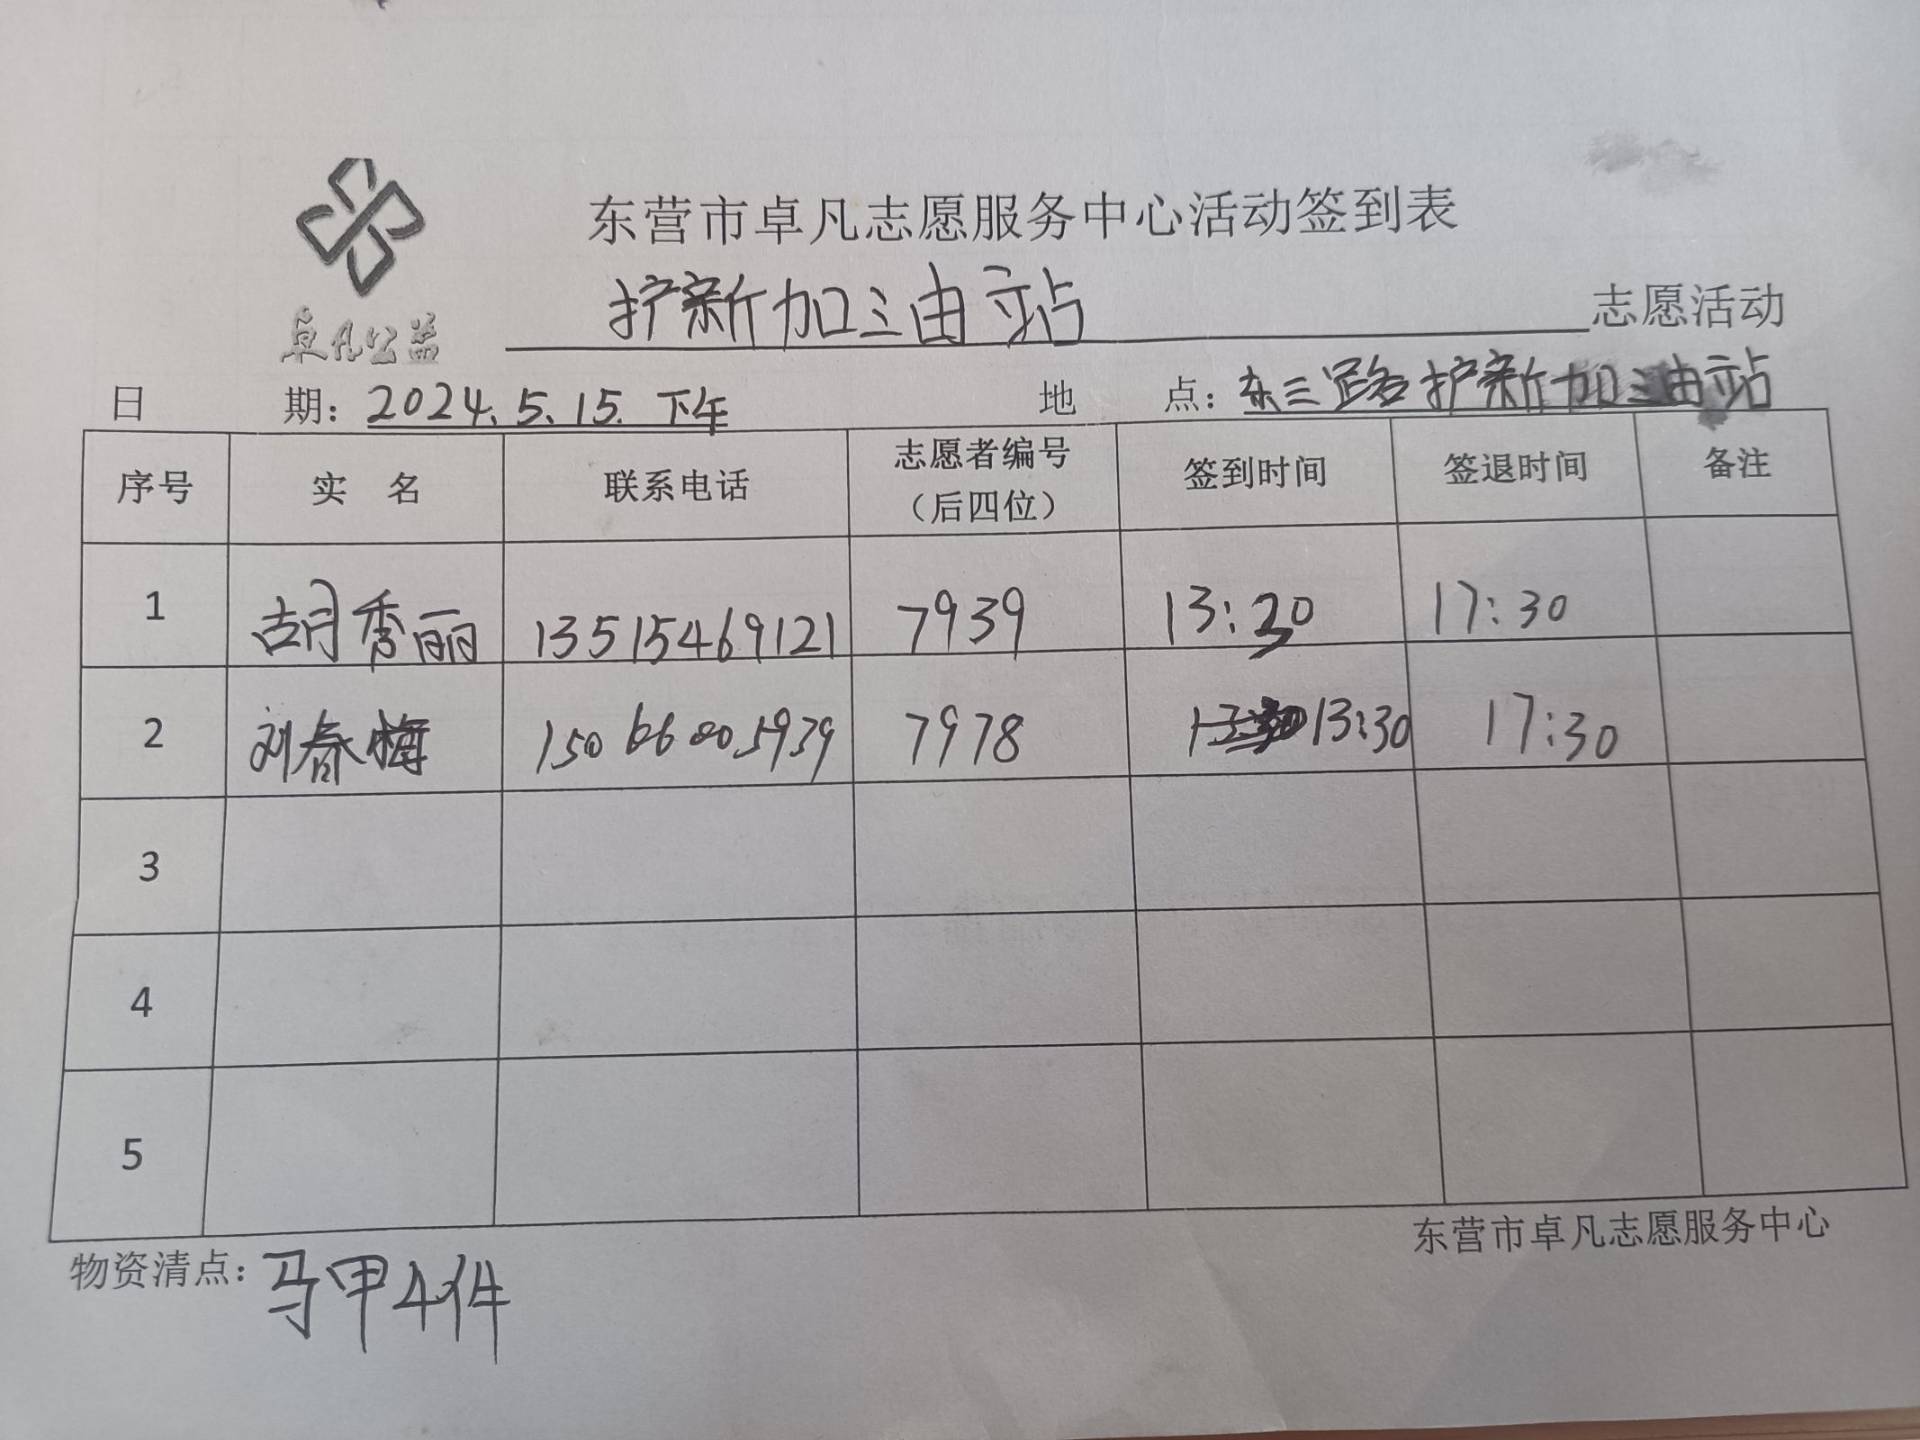 东营市卓凡志愿服务中心活动签到表
卓凡公益
护新加氵由站 志愿活动
日 期：2024.5.15.下午 地 点：东三路护新加油站
序号 实 名 联系电话 志愿者编号（后四位） 签到时间 签退时间 备注
1 胡秀丽 13515469121 7939 13:30 17:30
2 刘春梅 15066005939 7978 13:30 17:30
3
4
5
物资清点：马甲4件
东营市卓凡志愿服务中心